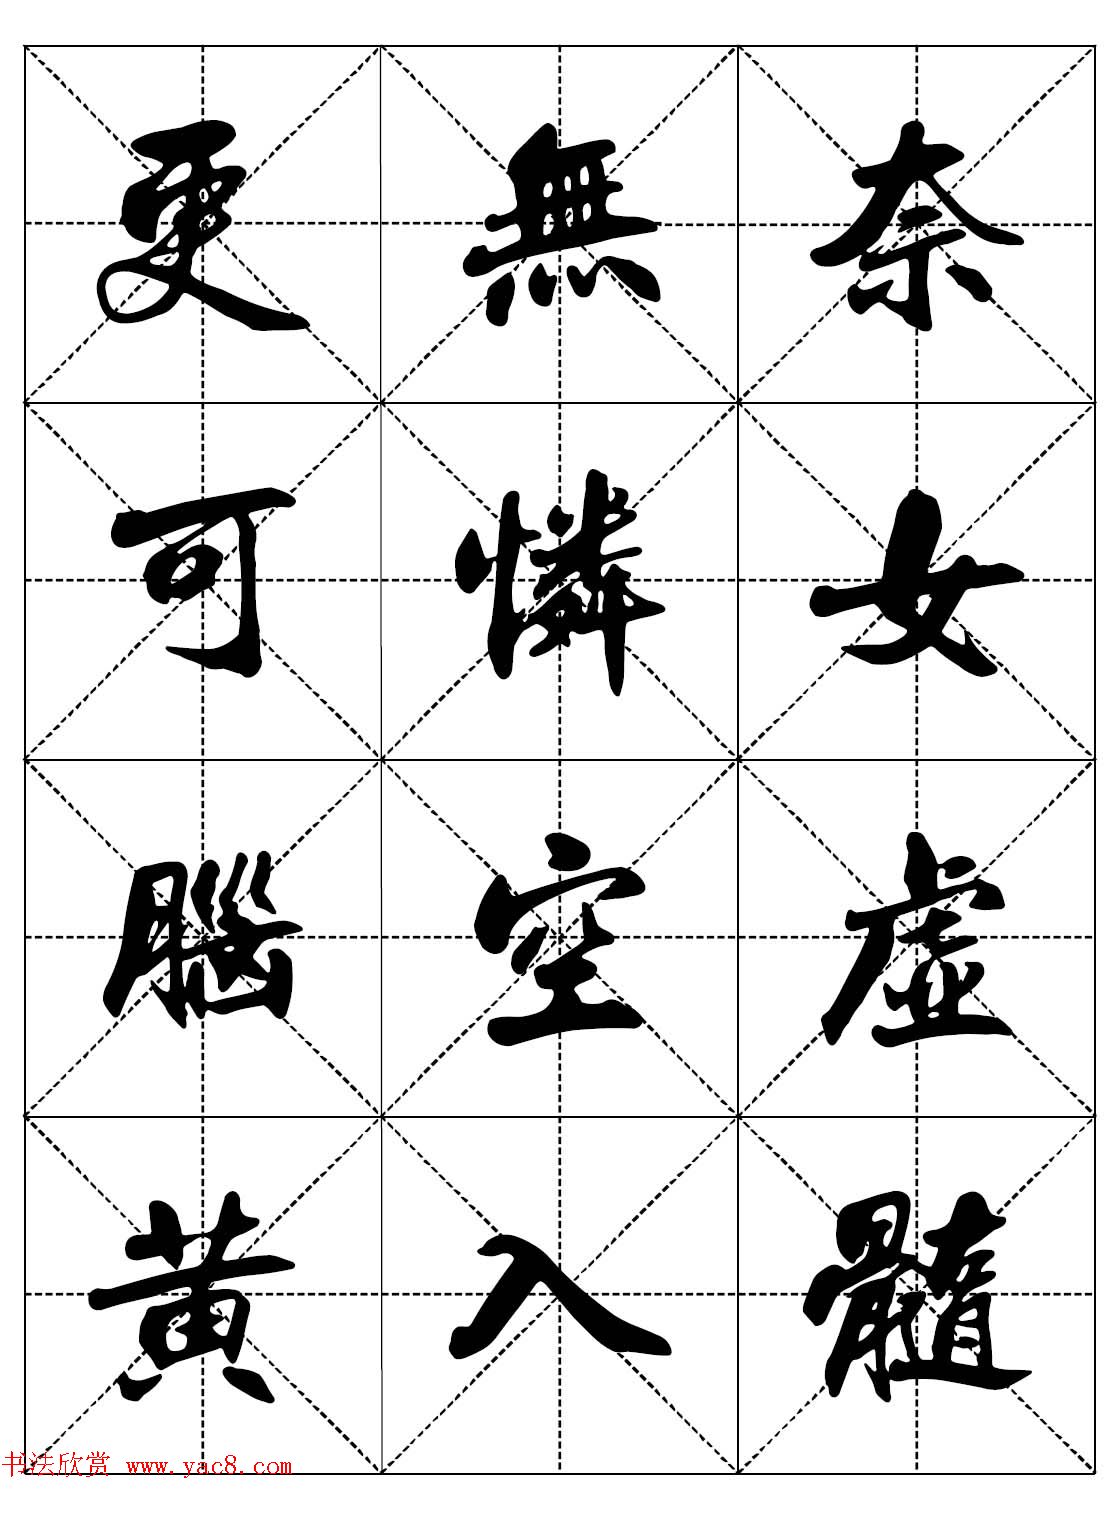 更無奈
可憐女
腦空虛
黄入髓
书法欣赏 www.yac8.com